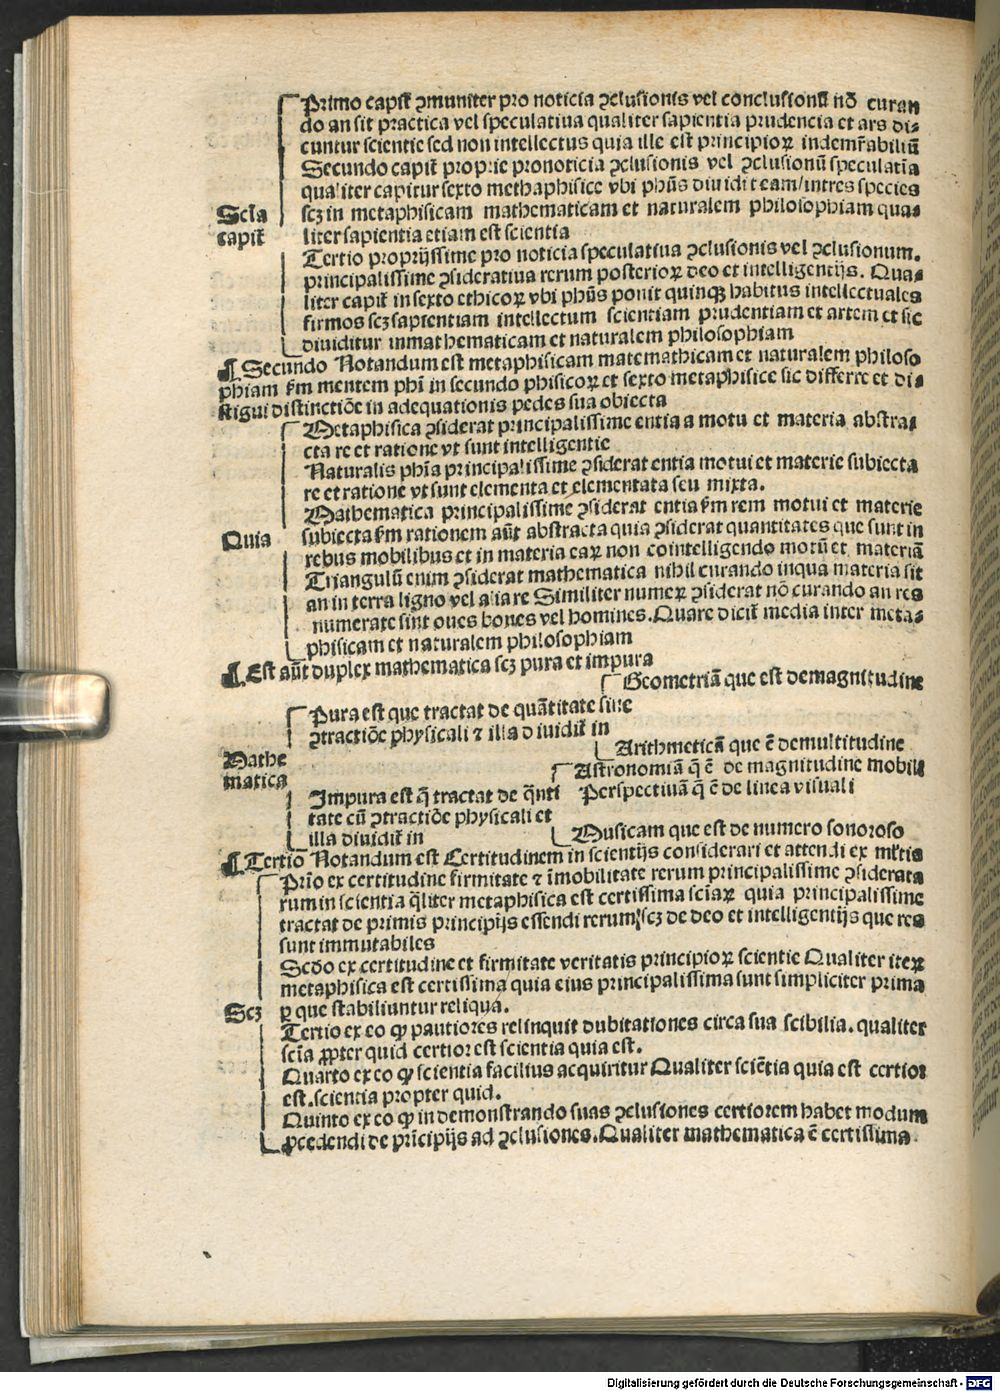 Primo capit̃ ꝯmuniter pro noticia ꝯclusionis vel conclusionũ nõ curan
do an sit practica vel speculatiua qualiter sapientia prudencia et ars di⸗
cuntur scientie sed non intellectus quia ille est principioꝝ indemr̃abiliũ
Secundo capit̃ proprie pro noticia ꝯclusionis vel ꝯclusionũ speculatĩa
qualiter capitur sexto methaphisice vbi phũs diuidit eam/in tres species
scꝫ in metaphisicam mathematicam et naturalem philosophiam qua⸗
Scĩa
capit̃
liter sapientia etiam est scientia
Tertio proprijssime pro noticia speculatiua ꝯclusionis vel ꝯclusionum.
principalissime ꝯsideratiua rerum posterioꝝ deo et intelligentijs. Qua⸗
liter capit̃ in sexto ethicoꝝ vbi phũs ponit quinqꝫ habitus intellectuales
firmos scꝫ sapientiam intellectum scientiam prudentiam et artem et sic
diuiditur in mathematicam et naturalem philosophiam
¶ Secundo Notandum est metaphisicam matemathicam et naturalem philoso
phiam s̃m mentem phĩ in secundo phisicoꝝ et sexto metaphisice sic differre et di⸗
stigui distinctiõe in adequationis penes sua obiecta
Metaphisica ꝯsiderat principalissime entia a motu et materia abstra⸗
cta re et ratione vt sunt intelligentie
Naturalis phĩa principalissime ꝯsiderat entia motui et materie subiecta
re et ratione vt sunt elementa et elementata seu mixta.
Mathematica principalissime ꝯsiderat entia s̃m rem motui et materie
Quia
subiecta s̃m rationem aũt abstracta quia ꝯsiderat quantitates que sunt in
rebus mobilibus et in materia eaꝝ non cointelligendo motũ et materiã
Triangulũ enim ꝯsiderat mathematica nihil curando in qua materia sit
an in terra ligno vel alia re Similiter numeꝝ ꝯsiderat nõ curando an res
numerate sint oues boues vel homines. Quare dicit̃ media inter meta⸗
phisicam et naturalem philosophiam
¶ Est aũt duplex mathematica scꝫ pura et impura
Geometriã que est de magnitudine
Pura est que tractat de quãtitate sine
ꝯtractiõe physicali ⁊ illa diuidit̃ in
Arithmeticã que ẽ de multitudine
Mathe
matica
Astronomiã q̃ ẽ de magnitudine mobili
Impura est q̃ tractat de q̃nti
Perspectiuã q̃ ẽ de linea visuali
tate cũ ꝯtractiõe physicali et
illa diuidit̃ in
Musicam que est de numero sonoroso
¶ Tertio Notandum est Certitudinem in scientijs considerari et attendi ex ml̃tis
Prĩo ex certitudine firmitate ⁊ ĩmobilitate rerum principalissime ꝯsiderata
rum in scientia q̃liter metaphisica est certissima scĩaꝝ quia principalissime
tractat de primis principijs essendi rerum/scꝫ de deo et intelligentijs que res
sunt immutabiles
Scḋo ex certitudine et firmitate veritatis principioꝝ scientie Qualiter iteꝝ
metaphisica est certissima quia eius principalissima sunt simpliciter prima
Scꝫ
ꝑ que stabiliuntur reliqua.
Tertio ex eo ꝙ pautiores relinquit dubitationes circa sua scibilia. qualiter
scĩa ꝓpter quid certior est scientia quia est.
Quarto ex eo ꝙ scientia facilius acquiritur Qualiter sciẽtia quia est certior
est. scientia propter quid.
Quinto ex eo ꝙ in demonstrando suas ꝯclusiones certiorem habet modum
ꝓcedendi de prĩcipijs ad ꝯclusiones. Qualiter mathematica ẽ certissima
Digitalisierung gefördert durch die Deutsche Forschungsgemeinschaft - DFG